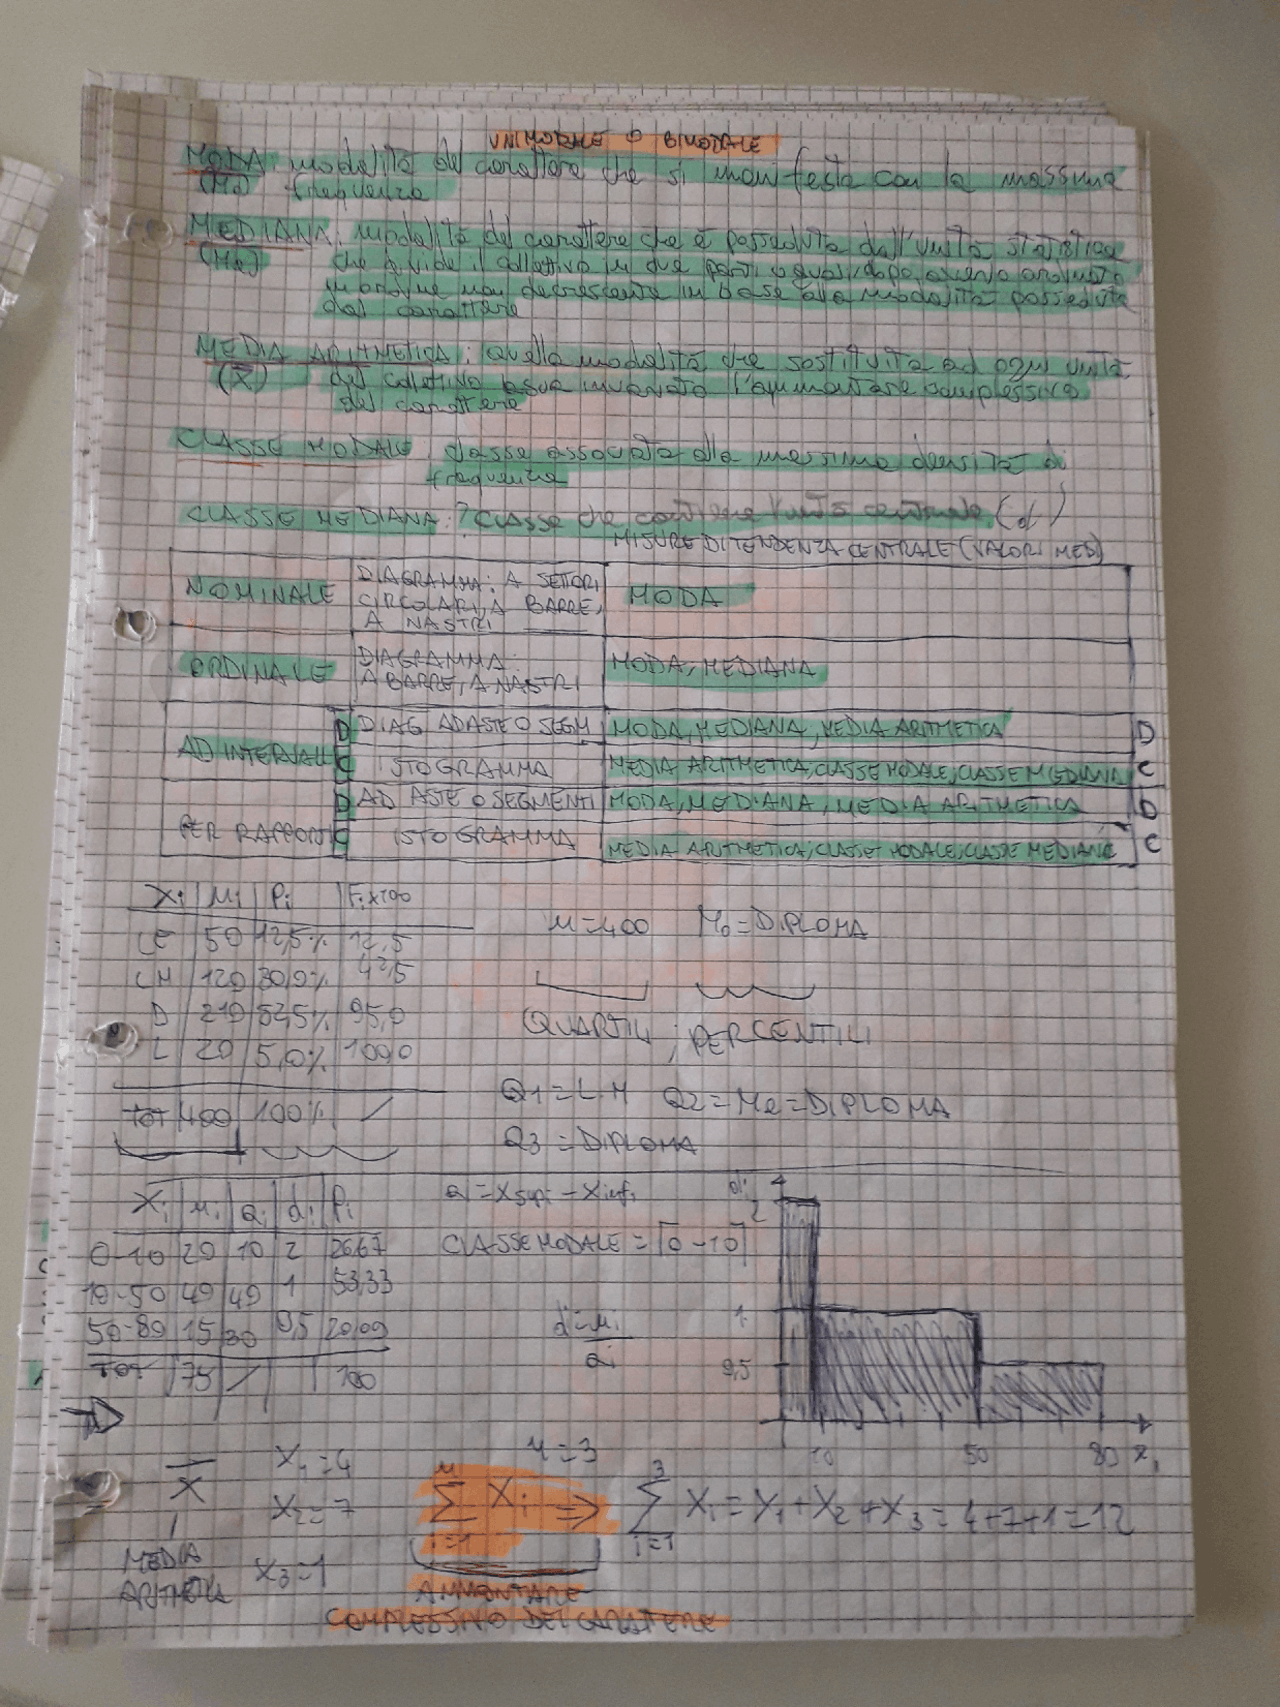 UNIMODALE O BIMODALE
MODA: modalità del carattere che si manifesta con la massima
(Mo) frequenza
MEDIANA: modalità del carattere che è posseduta dall'unità statistica
(Me) che divide il collettivo in due parti uguali, dopo averlo ordinato
in ordine non decrescente in base alla modalità posseduta
del carattere
MEDIA ARITMETICA: quella modalità che sostituita ad ogni unità
(X̄) del collettivo lascia invariato l'ammontare complessivo
del carattere
CLASSE MODALE: classe associata alla massima densità di
frequenza
CLASSE MEDIANA: ? Classe che contiene l'unità centrale (di)
MISURE DI TENDENZA CENTRALE (VALORI MEDI)
NOMINALE DIAGRAMMA: A SETTORI CIRCOLARI, A BARRE, A NASTRI MODA
ORDINALE DIAGRAMMA: A BARRE, A NASTRI MODA, MEDIANA
AD INTERVALLI D DIAG AD ASTE O SEGM MODA, MEDIANA, MEDIA ARITMETICA D
C ISTOGRAMMA MEDIA ARITMETICA, CLASSE MODALE, CLASSE MEDIANA C
PER RAPPORTI D AD ASTE O SEGMENTI MODA, MEDIANA, MEDIA ARITMETICA D
C ISTOGRAMMA MEDIA ARITMETICA, CLASSE MODALE, CLASSE MEDIANE C
Xi ni Pi Fi x100
LE 50 12,5% 12,5
LM 120 30,0% 42,5
D 210 52,5% 95,0
L 20 5,0% 100,0
TOT 400 100% /
n=400 Mo=DIPLOMA
QUARTILI; PERCENTILI
Q1=LM Q2=Me=DIPLOMA
Q3=DIPLOMA
Xi ni ai di Pi
0-10 20 10 2 26,67
10-50 40 40 1 53,33
50-80 15 30 0,5 20,00
TOT 75 / 100
a = xsupi - xinfi
CLASSE MODALE = [0-10]
di=ni/ai
di
2
1
0,5
10 50 80 xi
X̄
MEDIA
ARITMETICA
x1=4
x2=7
x3=1
n=3
n Σ i=1 Xi ⇒ 3 Σ i=1 Xi = X1+X2+X3=4+7+1=12
AMMONTARE
COMPLESSIVO DEL CARATTERE